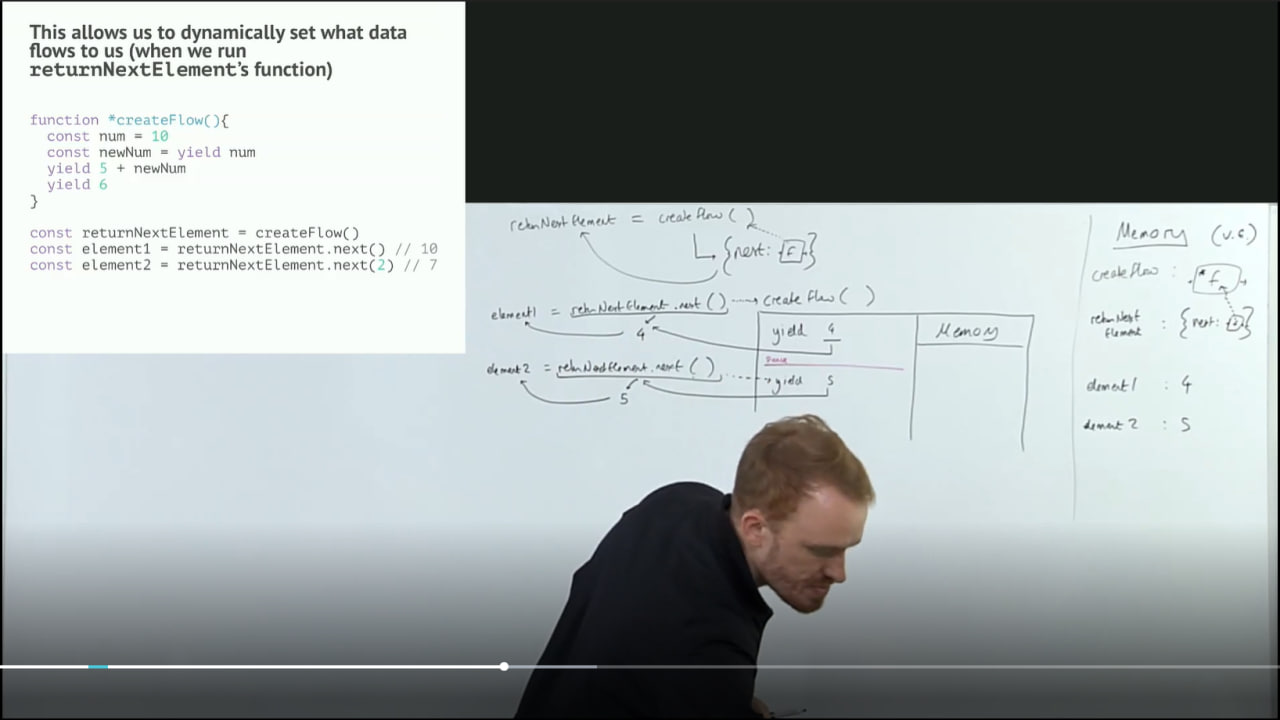 This allows us to dynamically set what data
flows to us (when we run
returnNextElement's function)
function *createFlow(){
const num = 10
const newNum = yield num
yield 5 + newNum
yield 6
}
const returnNextElement = createFlow()
const element1 = returnNextElement.next() // 10
const element2 = returnNextElement.next(2) // 7
returnNextElement = createFlow ( )
{next: f}
element1 = returnNextElement.next ( ) createFlow ( )
4
yield 4
Memory
element2 = returnNextElement.next ( )
5
yield 5
Memory (v.s.)
createFlow : *f
returnNext
Element : {next: f}
element1 : 4
element2 : 5